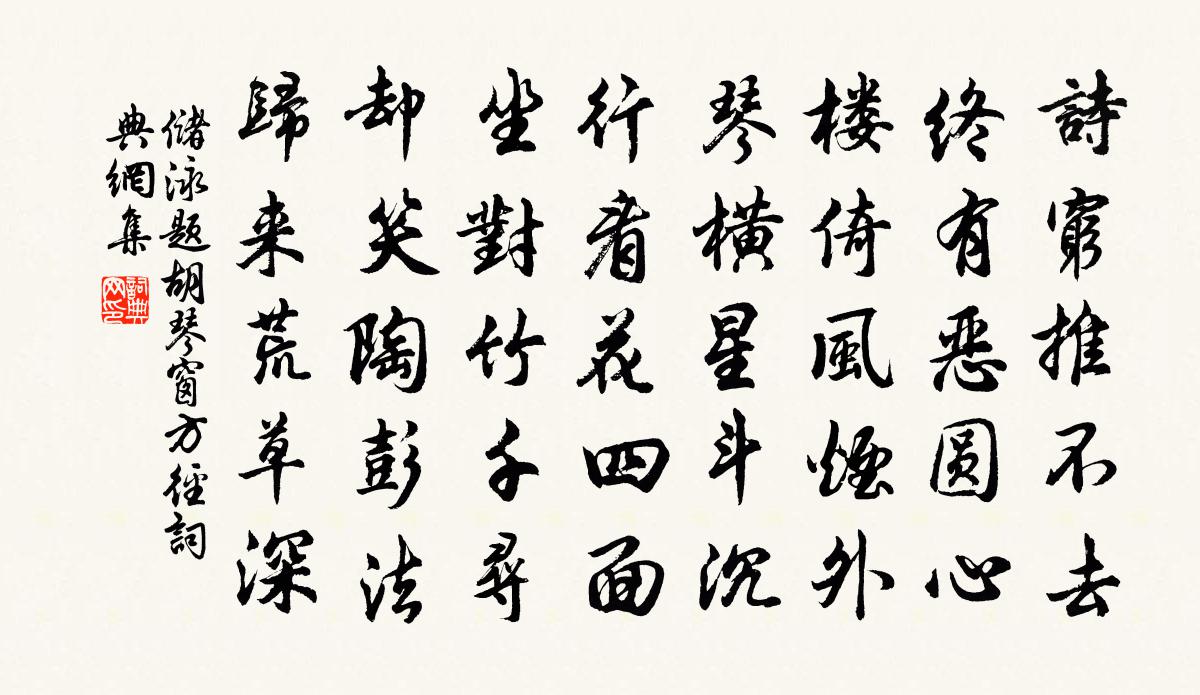 詩窮推不去
終有惡圆心
楼倚風煙外
琴橫星斗沉
行看花四面
坐對竹千尋
却笑陶彭法
歸来荒草深
儲泳题胡琴窗方徑詞
典網集
詞典
网印